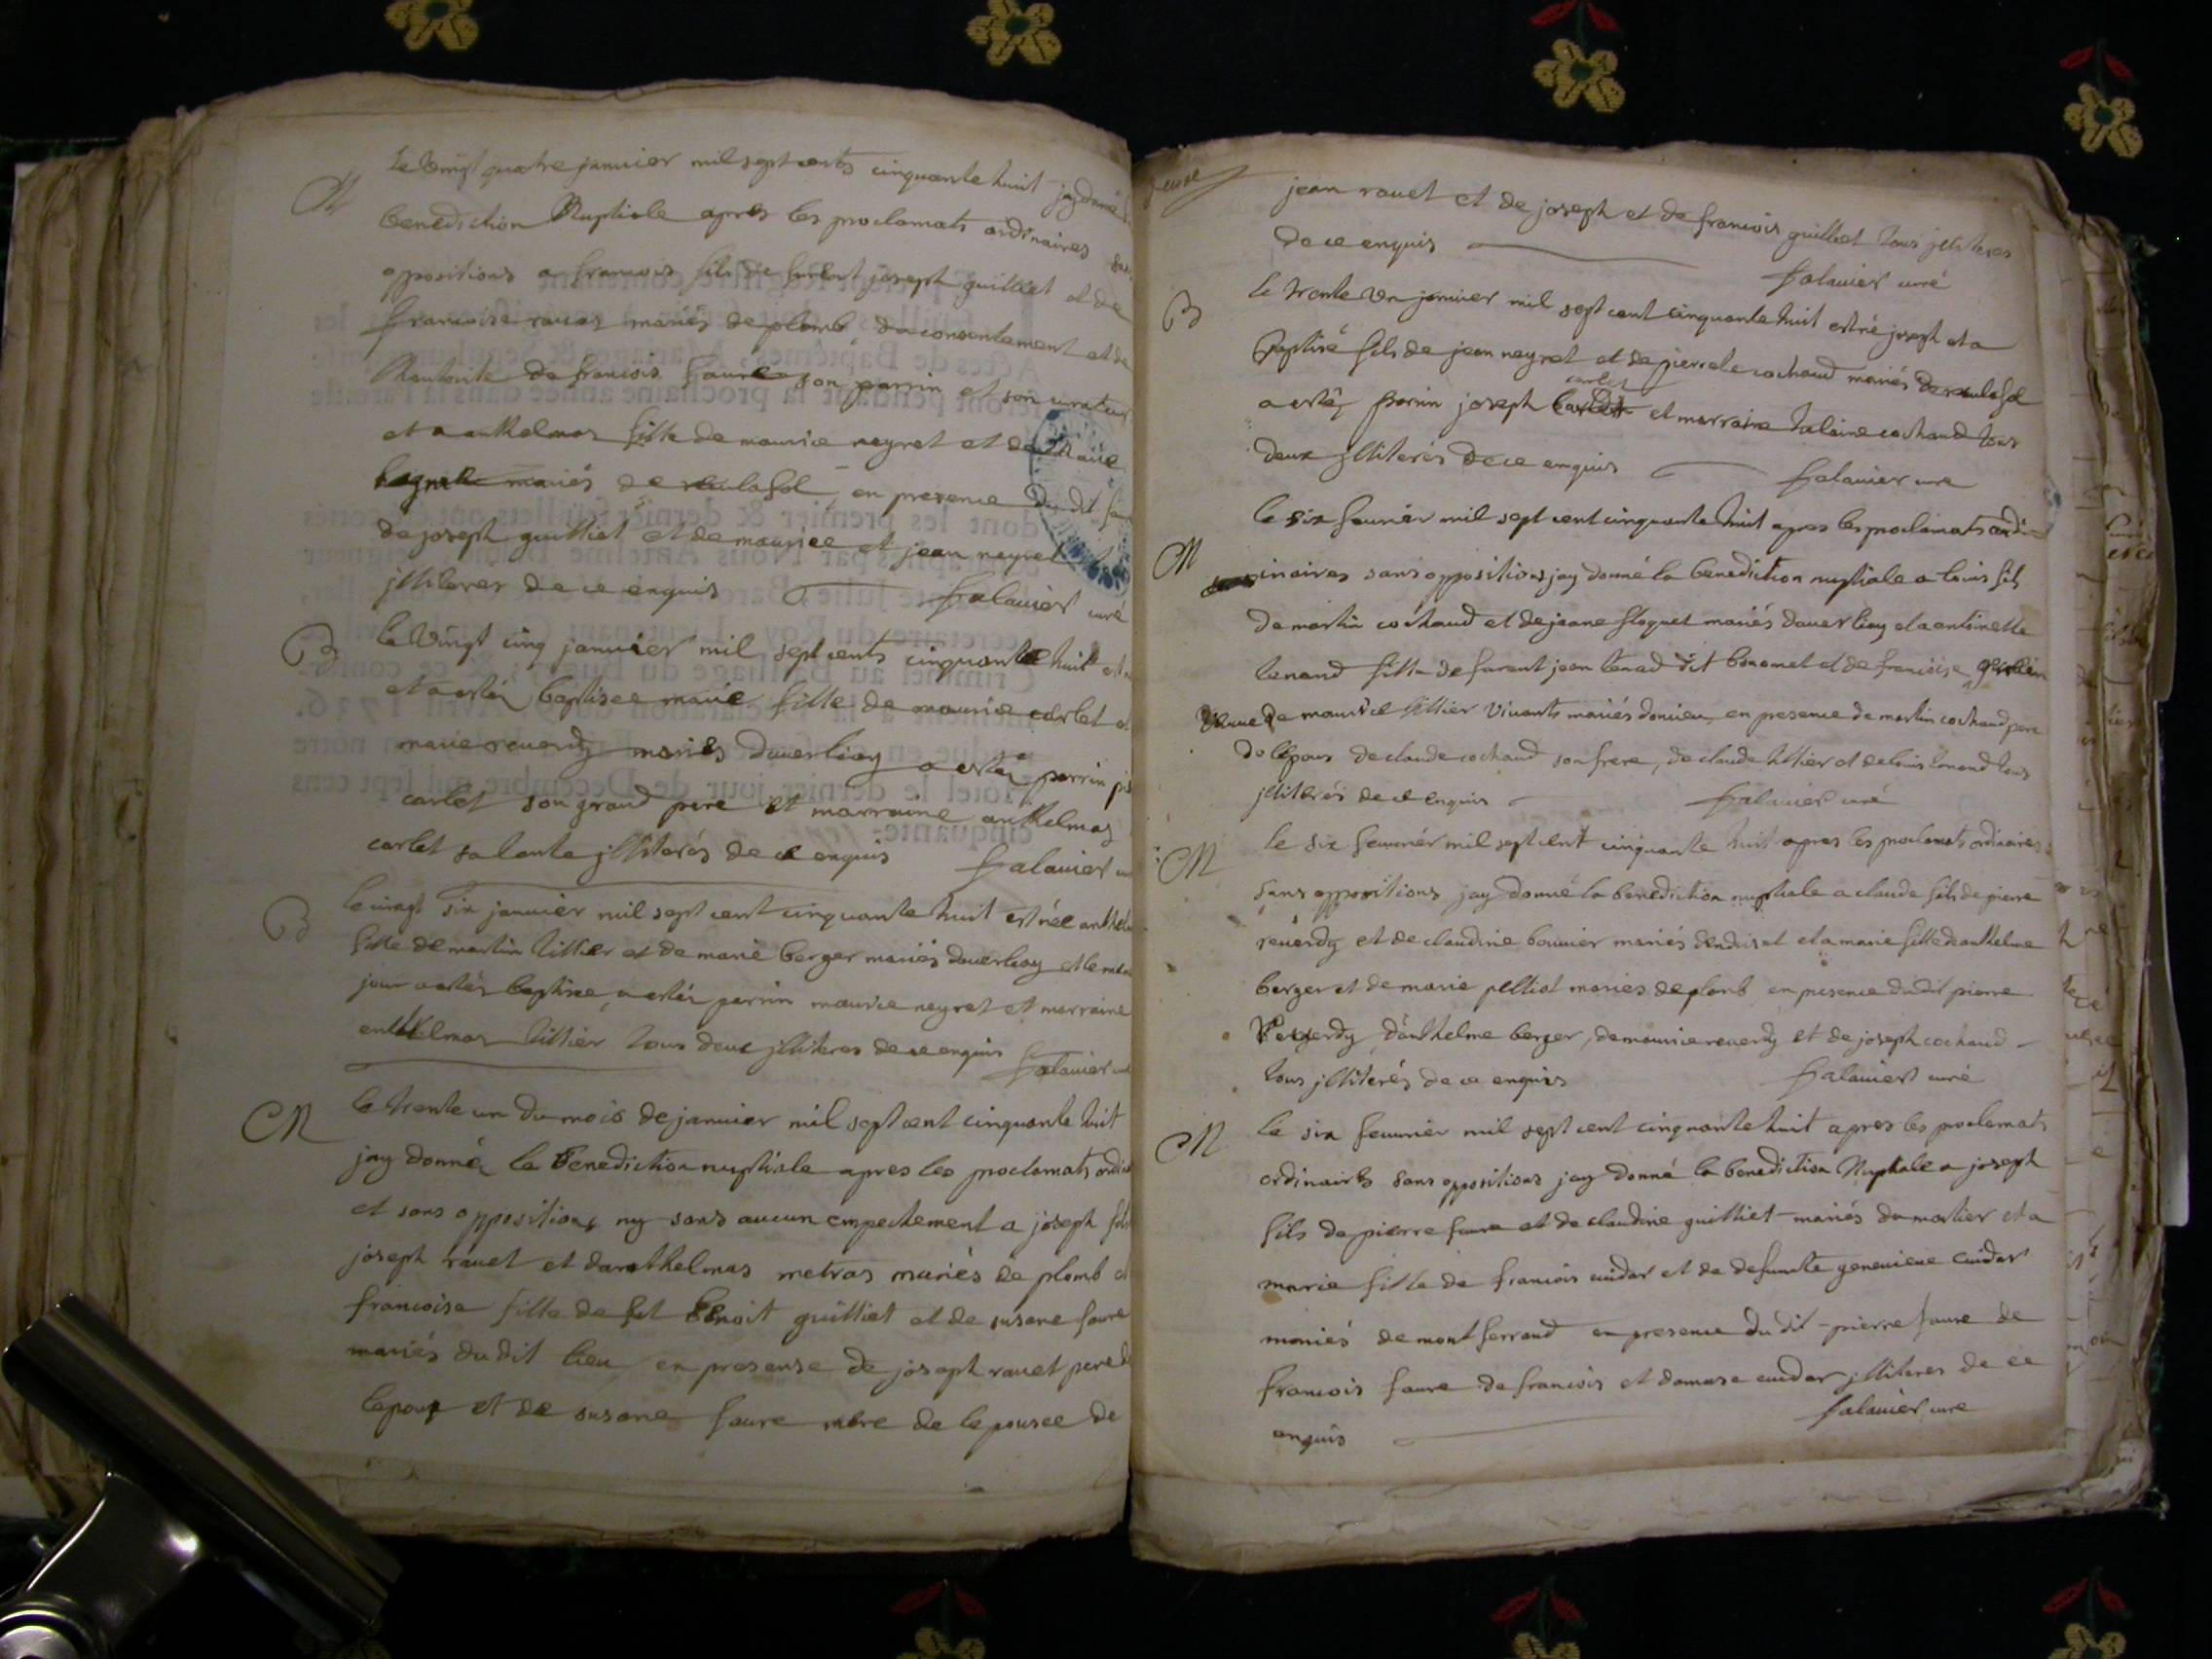 M
le vingt quatre janvier mil sept cents cinquante huit jay donné
benediction Nuptiale apres les proclamats ordinaires
oppositions a francois fils de furent joseph guilliet et de
francoise mariés de plomb du consentement et de
de francois faure son parrin et son curateur
et a anthelmas fille de maurice neyret et de
mariés de en presence du dit
de joseph guilliet et de maurice et jean neyret
jlliteres de ce enquis falavier curé
B
le vingt cinq janvier mil sept cents cinquante huit
et a estéz baptisee marie fille de maurice carlet
marie reverdy mariés daverliay a estéz parrin
carlet son grand pere et marraine anthelmas
carlet sa tante jlliterés de ce enquis falavier
B
le vingt six janvier mil sept cent cinquante huit est née
fille de martin tillier et de marie berger mariés daverliay et le
jour a estéz baptisee a estéz parrin maurice neyret et marraine
anthelmas tillier tous deux jlliteres de ce enquis falavier
M
le trente un du mois de janvier mil sept cent cinquante huit
jay donnéz la benediction nuptiale apres les proclamats
et sans oppositions ny sans aucun empechement a joseph fils
joseph ravet et danthelmas metras mariés de plomb
francoise fille de fut benoit guilliet et de susane faure
mariés du dit lieu en presense de joseph ravet pere de
lepoux et de susane faure mere de lepousee de
jean ravet et de joseph et de francois guilliet tous jlliteres
de ce enquis falavier curé
B
le trente un janvier mil sept cent cinquante huit est né joseph et a
baptisé fils de jean neyret et de pierrete cochaud mariés
carlet
a estéz parrin joseph et marraine cochaud tous
deux jlliterés de ce enquis falavier cure
M
le six fevrier mil sept cent cinquante huit apres les proclamats ordi
inaires sans oppositions jay donné la benediction nuptiale a louis fils
de martin cochaud et de jeane floquet mariés daverliay et a antoinette
tenand fille de furent jean tenad dit et de francoise
veuve de maurice tillier vivants mariés en presence de martin cochaud pere
de lepoux de claude cochaud son frere, de claude tillier et de louis tenand tous
jlliterés de ce enquis falavier curé
M
le six fevvrier mil sept cent cinquante huit apres les proclamats ordinaires
sans oppositions jay donné la benediction nuptiale a claude fils de pierre
reverdy et de claudine bouvier mariés et a marie fille danthelme
berger et de marie pelliat mariés de plomb en presence du dit pierre
Reverdy danthelme berger, de maurice reverdy et de joseph cochaud
tous jlliterés de ce enquis falavier curé
M
le six fevvrier mil sept cent cinquante huit apres les proclamats
ordinaires sans oppositions jay donné la benediction Nuptiale a joseph
fils de pierre faure et de claudine guilliet mariés du mortier et a
marie fille de francois cuidar et de defuncte genevieve cuidar
mariés de montferrand en presence du dit pierre faure de
francois faure de francois et damase cuidar jlliteres de ce
enquis falavier cure